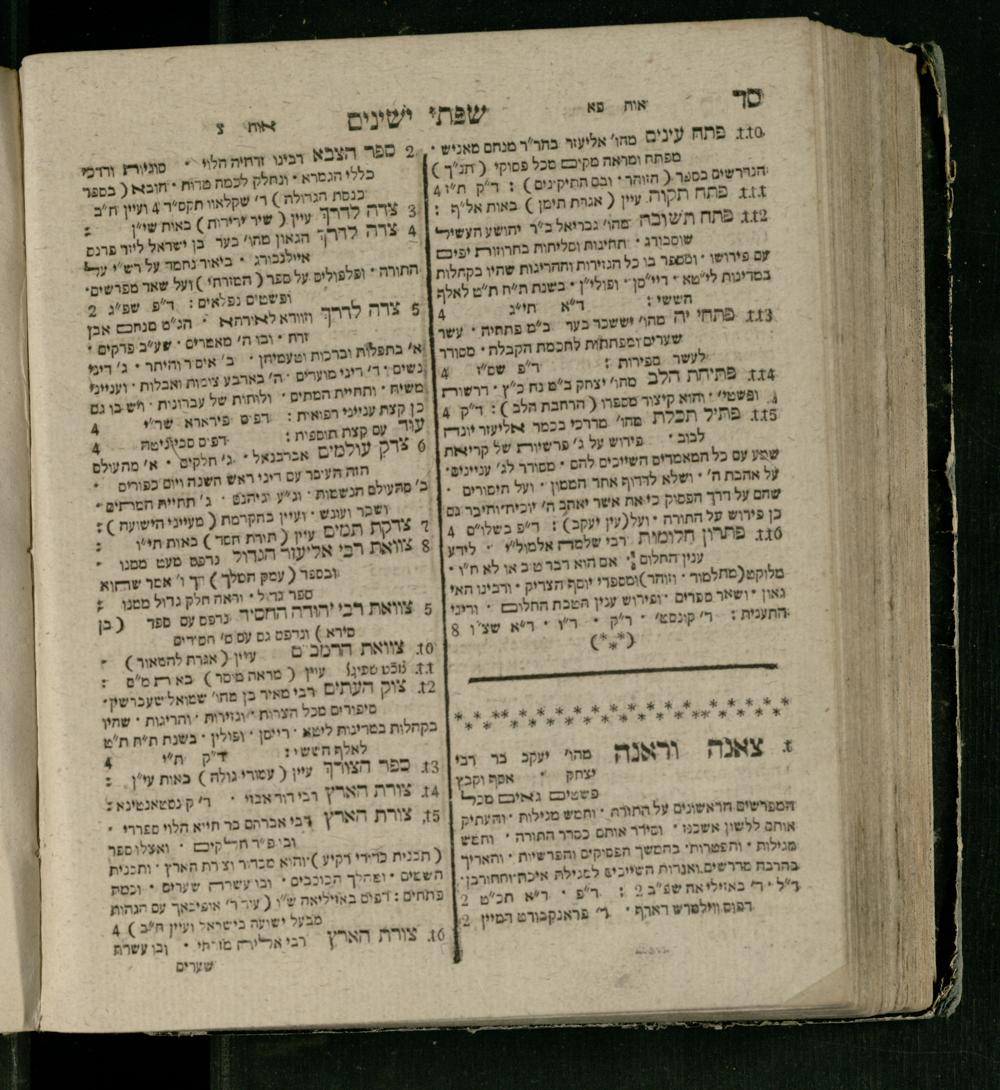 סד
אות פא
שפתי ישינים
אות צ
110. פתח עינים מהו׳ אליעזר בהר״ר מנחם מאניש •
מפתח ומראה מקום מכל פסוקי ( תנ״ך )
הנדרשים בספר ( הזוהר • ובם התיקינים ) : ד״ק ת״ז 4
111. פתח תקוה עיין ( אגרת תימן ) באות אל״ף :
112. פתח תשובה מהו׳ גבריאל ב״ר יהושע העשיל
שוסבורג • תחינות וסליחות בחרוזות יפים
עם פירושו • ומספר בו כל הגזירות וההריגות שהיו בקהלות
במדינות ליטא • רייסן • ופולין • בשנת ת״ח ת״ט לאלף
הששי : ד״א תי״ג 4
113. פתחי יה מהו׳ יששכר בער ב״מ פתחיה • עשר
שערים ומפתחות לחכמת הקבלה • מסודר
לעשר ספירות : ד״פ שס״ז 4
114. פתיחת הלב מהו׳ יצחק ב״מ נח כ״ץ • דרשות
ופשטי׳ • והוא קיצור מספרו ( הרחבת הלב ) : ד״ק 4
115. פתיל תכלת מהו׳ מרדכי בכמר אליעזר יונה
לבוב • פירוש על ג׳ פרשיות של קריאת
שמע עם כל המאמרים השייכים להם • מסודר לג׳ עניינים •
על אהבת ה׳ • ושלא לרדוף אחר הממון • ועל היסורים •
שהם על דרך הפסוק כי את אשר יאהב ה׳ יוכיח וחיבר גם
כן פירוש על התורה • ועל (עין יעקב) : ד״פ בשלו״ם 4
116. פתרון חלומות רבי שלמה אלמולי • לידע
ענין החלום • אם הוא דבר טוב או לא ח״ו •
מלוקט ( מתלמוד • וזוהר ) ומספרי יוסף הצדיק • ורבינו האי
גאון • ושאר ספרים • ופירוש ענין הטבת החלום • ודיני
התענית : ד׳ קונסט׳ • ד״ק • ד״ו • ד״א שצ״ו 8
(***)
1. צאנה וראנה מהו׳ יעקב בר רבי
יצחק • אסף וקבץ
פשטים נאים מכל
המפרשים הראשונים על התורה • וחמש מגילות • והעתיק
אותם ללשון אשכנז • וסידר אותם כסדר התורה • וחמש
מגילות • והפטרות • בהמשך הפסוקים והפרשיות • והאריך
בהרבה מדרשים ואגדות השייכים למגילת איכה וחורבן •
ד״ל • ד׳ באזיליאה שפ״ב 2 : ד״פ • ד״א תכ״ט 2
דפוס ווילמרש דארף • ד׳ פראנקבורט דמיין 2
2 ספר הצבא רבינו זרחיה הלוי • סוגיות ודרכי
כללי הגמרא • ונחלק לכמה מדות • הובא ( בספר
כנסת הגדולה ) ד׳ שקלאוו תקס״ד 4 ועיין ח״ב
3 צדה לדרך עיין ( שיר ידידות ) באות שי״ן :
4 צדה לדרך הגאון מהו׳ בער בן ישראל ליזר פרנס
איילנבורג • ביאור נחמד על רש״י על
התורה • ופלפולים על ספר ( המזרחי ) ועל שאר מפרשים •
ופשטים נפלאים : ד״פ שפ״ג 2
5 צדה לדרך וזוודא לאורחא • הנ״ט מנחם אבן
זרח • ובו ה׳ מאמרים • שע״ב פרקים •
א׳ בתפלות וברכות וטעמיהן • ב׳ איסר והיתר • ג׳ דיני
נשים • ד׳ דיני מועדים • ה׳ בארבע צומות ואבלות • ועניני
משיח • ותחיית המתים • ולוחות של עברונות • ויש בו גם
כן קצת ענייני רפואית : דפוס פיראראה שי״ד 4
עוד עם קצת תוספית : דפוס סביוניטה 4
6 צדק עולמים אברבנאל • ג׳ חלקים • א׳ מהעולם
הזה העיסר עם דיני ראש השנה ויום כפורים •
ב׳ מהעולם הנשמות • וג״ע וגיהנם • ג׳ תחיית המתים •
ושכר ועונש • ועיין בהקדמת ( מעייני הישועה ) :
7 צדקת תמים עיין ( תורת חסד ) באות תי״ו :
8 צוואת רבי אליעזר הגדול נדפס מעט ממנו •
ובספר ( עמק המלך ) דך ו׳ אמר שהוא
ספר גדול • וראה חלק גדול ממנו :
5 צוואת רבי יהודה החסיד נדפס עם ספר ( בן
סירא ) ונדפס גם עם ס׳ חסידים
10. צוואת הרמב״ם עיין ( אגרת להמאור ) :
11. עיין ( מראה מוסר ) באות מ״ם :
12. צוק העתים רבי מאיר בן מהו׳ שמואל שעברשין •
סיפורים מכל הצרות • וגזירות • והריגות • שהיו
בקהלות במדינות ליטא • רייסן • ופולין • בשנת ת״ח ת״ט
לאלף הששי : ד״ק ת״י 4
13. ספר הצורך עיין ( עמודי גולה ) באות עי״ן :
14. צורת הארץ רבי דוד אבוזי • ד׳ קינסטאנטינא :
15. צורת הארץ רבי אברהם בר חייא הלוי ספרדי •
ובו פ״ד חלקים • ואצלו ספר
( תכנית כדורי רקיע ) והוא מכדור וצורת הארץ • ותכנית
השמים • ומהלך הכוכבים • ובו עשרה שערים • וכמה
פתחים : דפוס באזיליאה ש״ו ( עיר ד׳ אופיבאך עם הגהות
מבעל ישועה בישראל ועיין ח״ב ) 4
16. צורת הארץ רבי אליה מזרחי • ובו עשרת
שערים